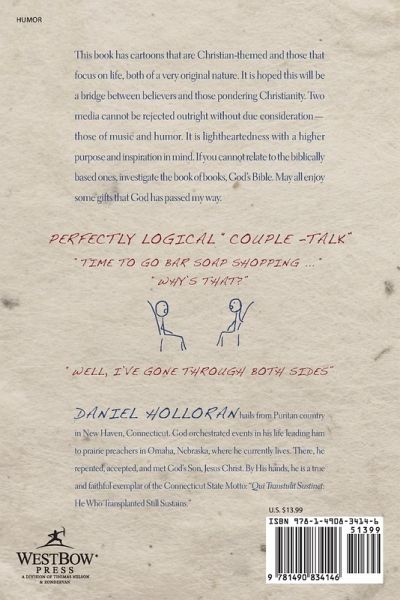 HUMOR
This book has cartoons that are Christian-themed and those that
focus on life, both of a very original nature. It is hoped this will be
a bridge between believers and those pondering Christianity. Two
media cannot be rejected outright without due consideration—
those of music and humor. It is lightheartedness with a higher
purpose and inspiration in mind. If you cannot relate to the biblically
based ones, investigate the book of books, God's Bible. May all enjoy
some gifts that God has passed my way.
PERFECTLY LOGICAL "COUPLE-TALK"
"TIME TO GO BAR SOAP SHOPPING ..."
"WHY'S THAT?"
"WELL, I'VE GONE THROUGH BOTH SIDES"
DANIEL HOLLORAN hails from Puritan country
in New Haven, Connecticut. God orchestrated events in his life leading him
to prairie preachers in Omaha, Nebraska, where he currently lives. There, he
repented, accepted, and met God's Son, Jesus Christ. By His hands, he is a true
and faithful exemplar of the Connecticut State Motto: "Qui Transtulit Sustinet:
He Who Transplanted Still Sustains."
U.S. $13.99
ISBN 978-1-4908-3414-6
51399
9 781490 834146
WESTBOW
PRESS
A DIVISION OF THOMAS NELSON
& ZONDERVAN